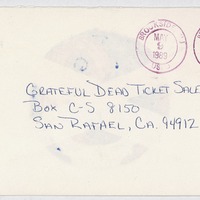 BROOKSIDE
MAY
9
1989
GRATEFUL DEAD TICKET SALE
BOX C-S 8150
SAN RAFAEL, CA. 94912